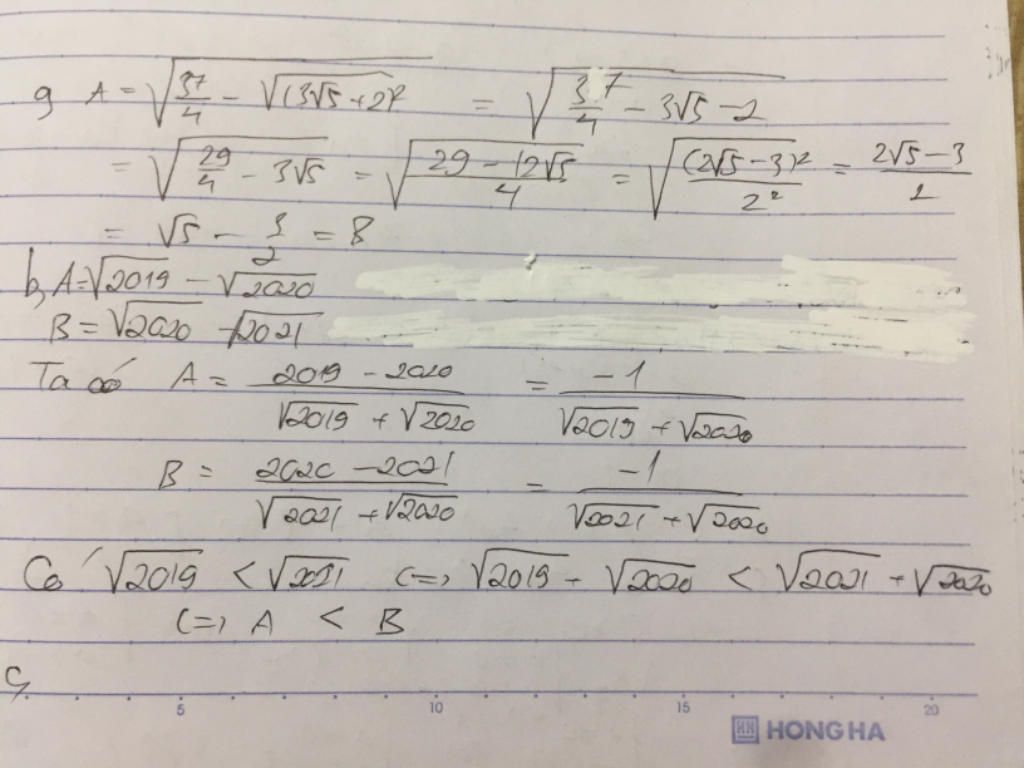 a, A = √(37/4 - √(3√5 + 2)²) = √(37/4 - 3√5 - 2)
= √(29/4 - 3√5) = √((29 - 12√5)/4) = √((2√5 - 3)²/2²) = (2√5 - 3)/2
= √5 - 3/2 = B
b, A = √2019 - √2020
B = √2020 - √2021
Ta có A = (2019 - 2020)/(√2019 + √2020) = -1/(√2019 + √2020)
B = (2020 - 2021)/(√2021 + √2020) = -1/(√2021 + √2020)
Có √2019 < √2021 (=) √2019 + √2020 < √2021 + √2020
(=) A < B
c,
5 10 15 20
HONG HA